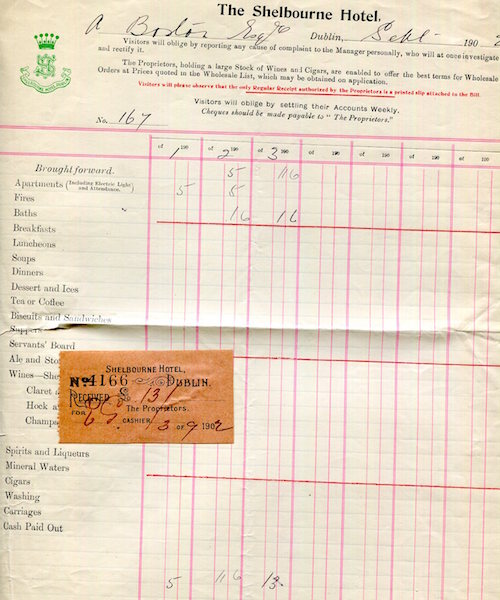 The Shelbourne Hotel,
A Boston Esqre Dublin, Sept 190 2
Visitors will oblige by reporting any cause of complaint to the Manager personally, who will at once investigate
and rectify it.
The Proprietors, holding a large Stock of Wines and Cigars, are enabled to offer the best terms for Wholesale
Orders at Prices quoted in the Wholesale List, which may be obtained on application.
Visitors will please observe that the only Regular Receipt authorized by the Proprietors is a printed slip attached to the Bill.
Visitors will oblige by settling their Accounts Weekly.
Cheques should be made payable to "The Proprietors."
No. 167
of 1 190 of 2 190 of 3 190 of 190 of 190 of 190 of 190
Brought forward. 5 116
Apartments (Including Electric Light and Attendance.) 5 5
Fires
Baths 16 16
Breakfasts
Luncheons
Soups
Dinners
Dessert and Ices
Tea or Coffee
Biscuits and Sandwiches
Suppers
Servants' Board
Ale and Sto
Wines—She
Claret
Hock a
Champ
SHELBOURNE HOTEL,
No 4166 DUBLIN.
RECEIVED £ 131
FOR The Proprietors.
CASHIER. 3 OF 9 1902
Spirits and Liqueurs
Mineral Waters
Cigars
Washing
Carriages
Cash Paid Out
5 116